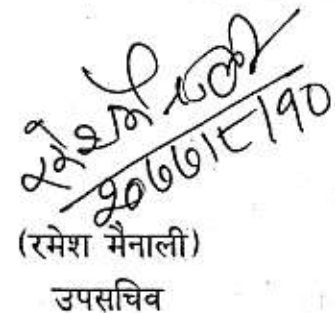 रमेश मैनाली
२०७७।८।१०
(रमेश मैनाली)
उपसचिव